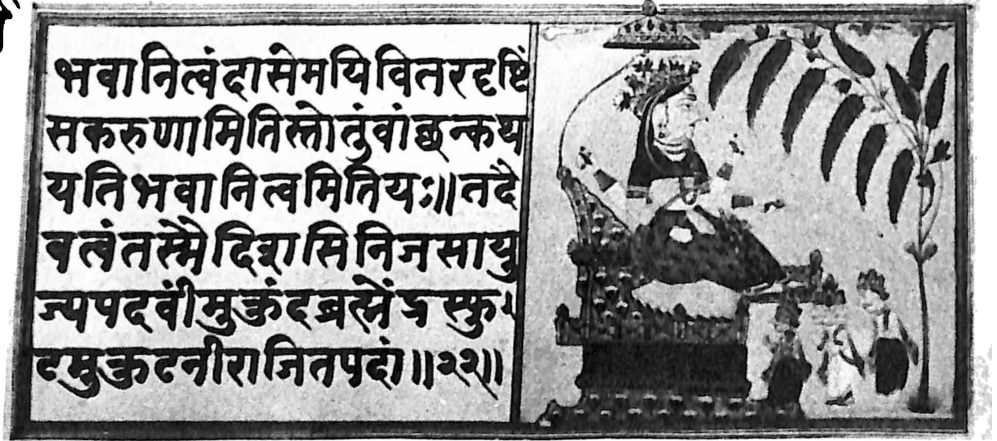 भवानित्वंदासेमयिवितरदृष्टिं
सकरुणामितिस्तोतुंवांछन्कथ
यतिभवानित्वमितियः॥तदै
वत्वंतस्मैदिशसिनिजसायु
ज्यपदवींमुकुंदब्रह्मेंद्रस्फु
टमुकुटनीराजितपदां॥२२॥